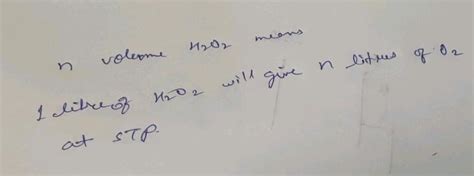 n volume H2O2 means
1 litre of H2O2 will give n litres of O2
at STP.